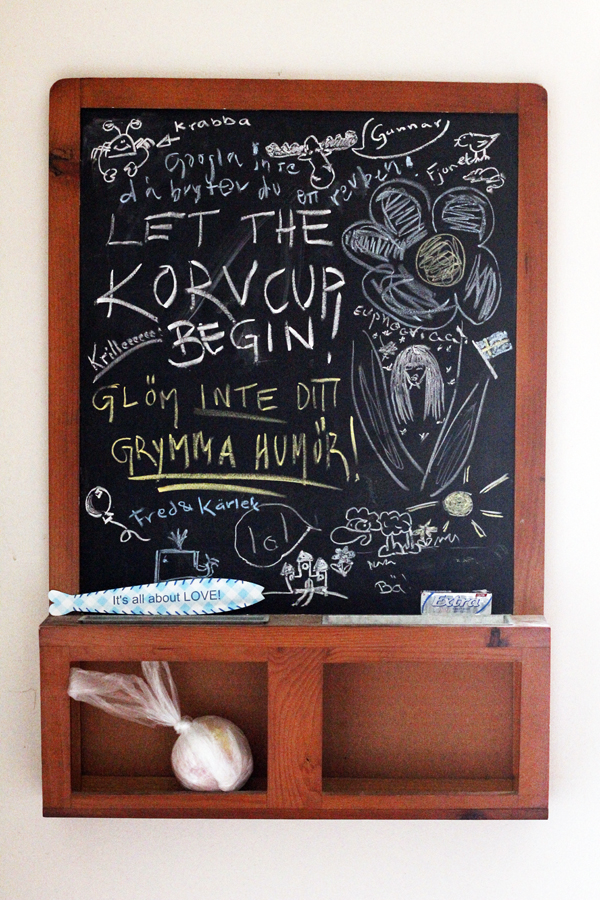 Krabba
Gunnar
Googla inte
då bryter du ett revben!
LET THE
KORVCUP
BEGIN!
Krilleeeeee!
GLÖM INTE DITT
GRYMMA HUMÖR!
Fred & Kärlek
lol
Bä!
It's all about LOVE!
Extra